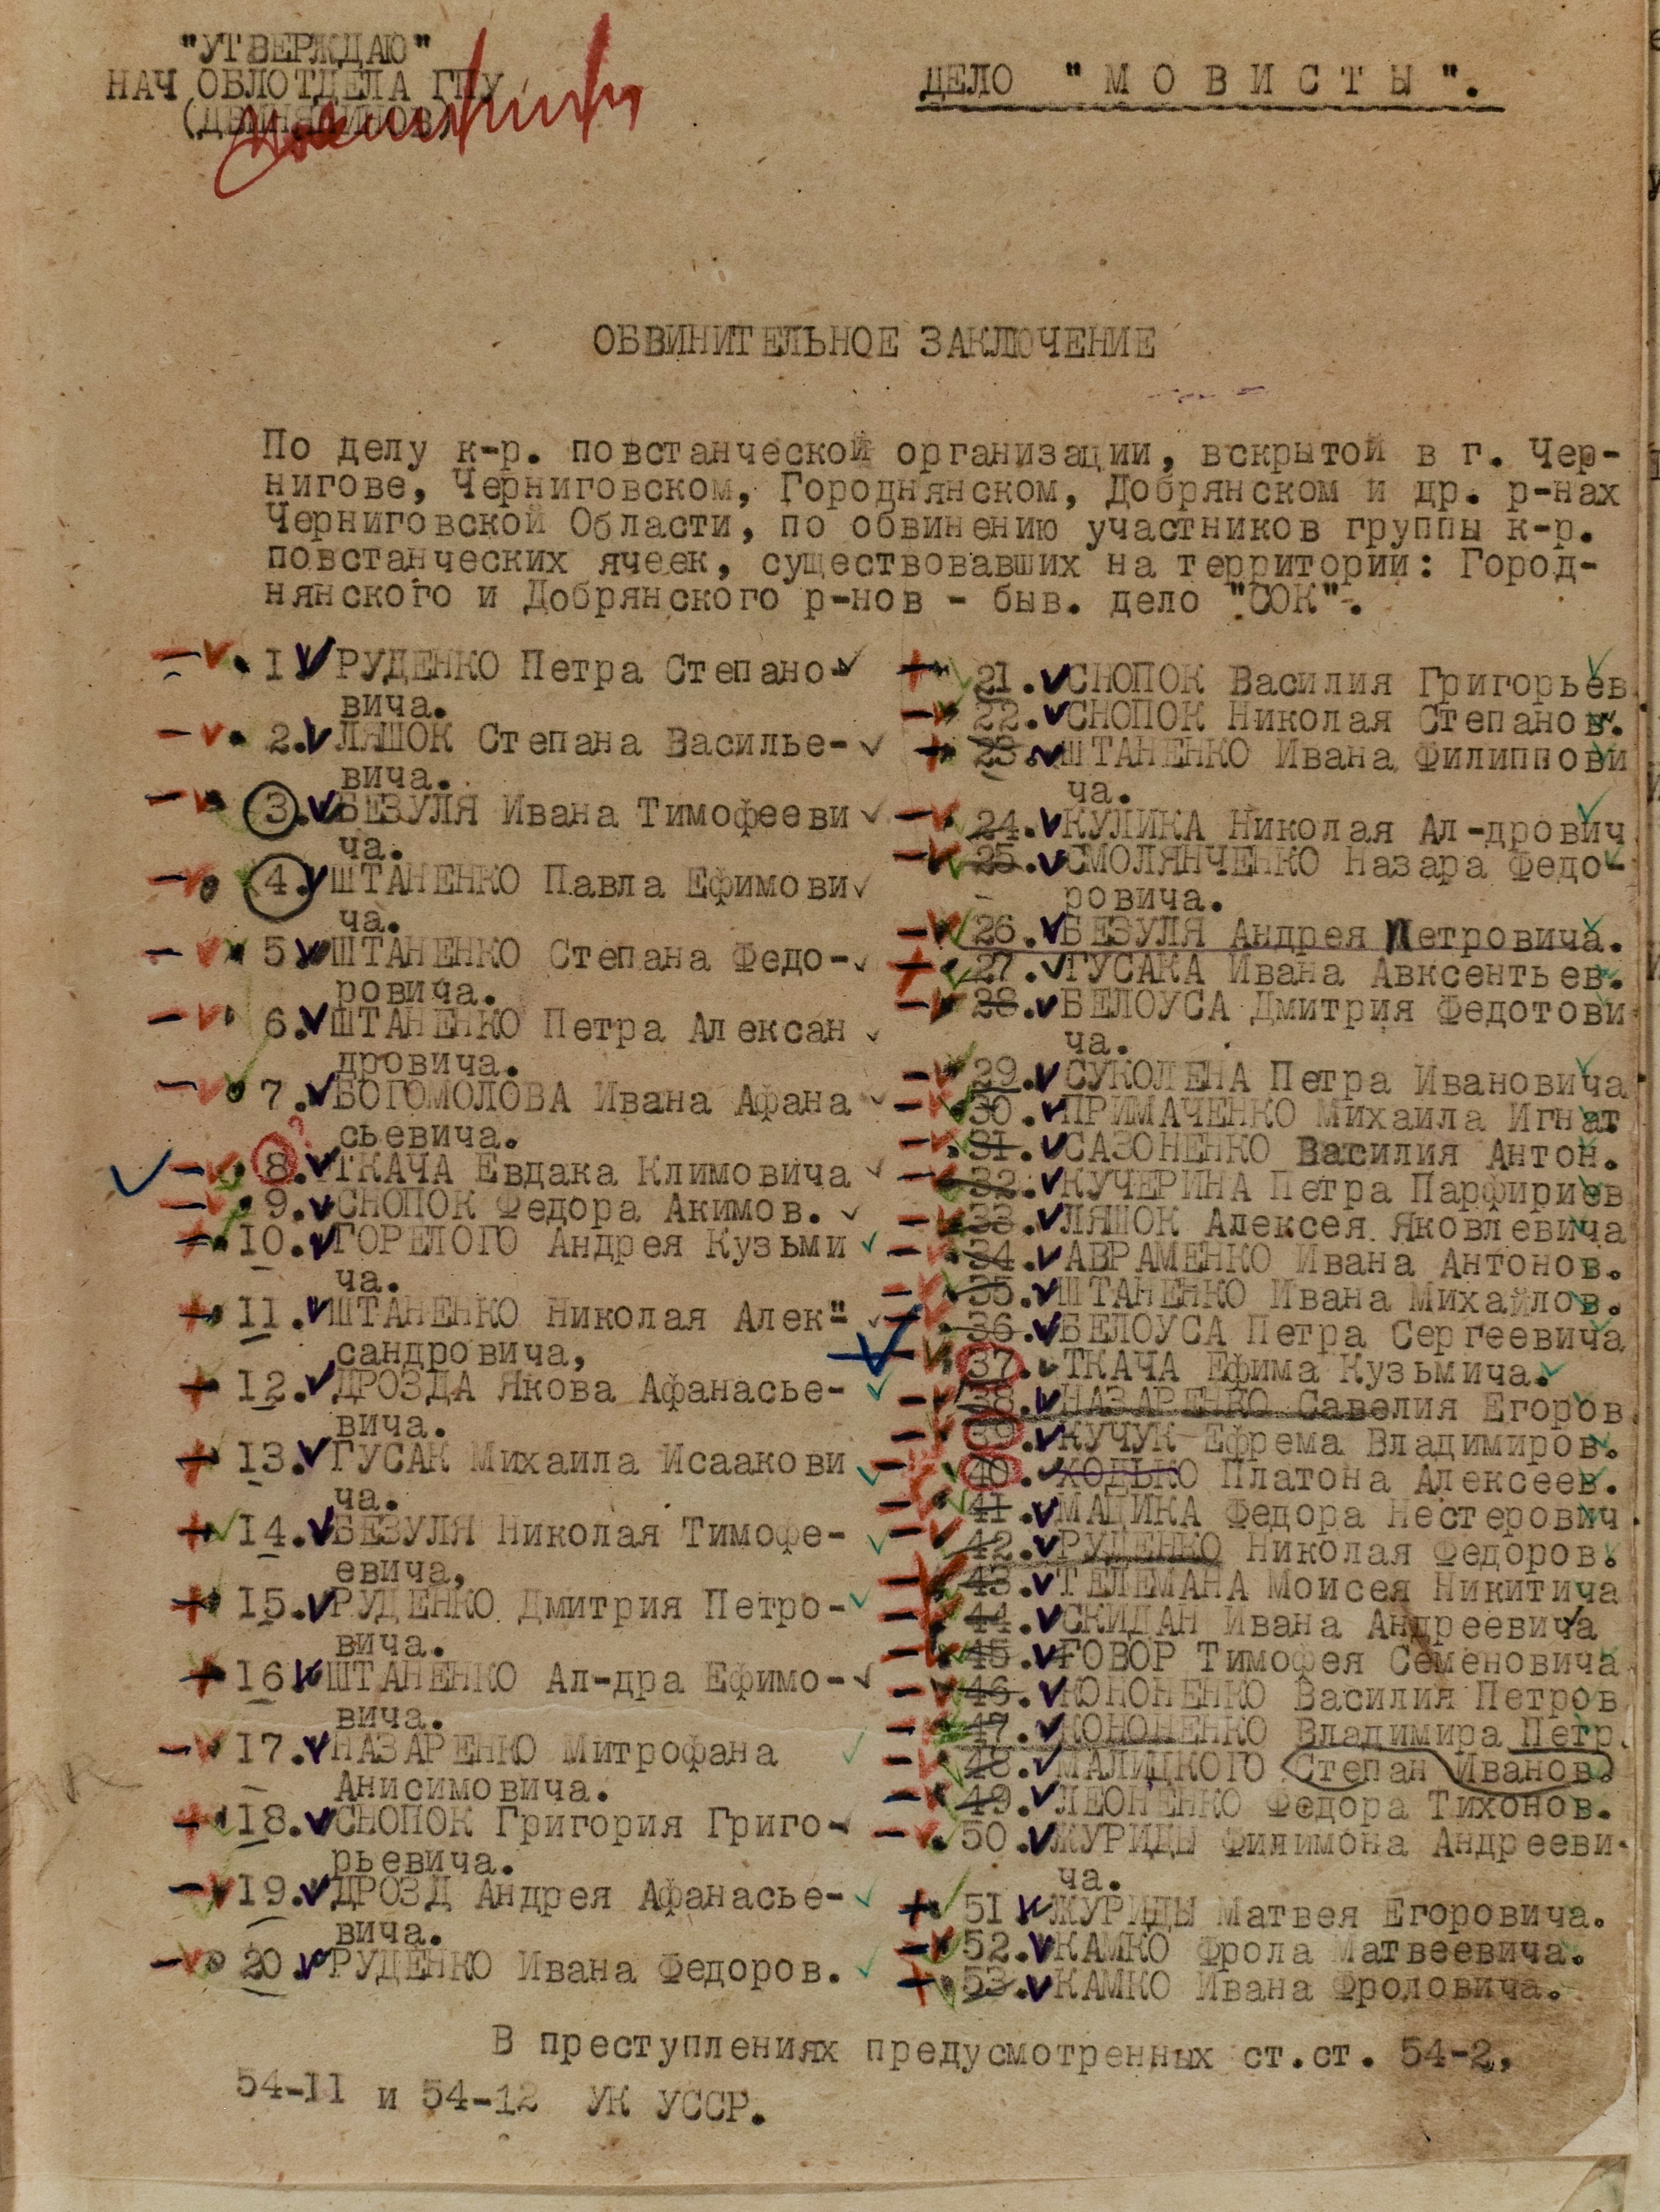 "УТВЕРЖДАЮ"
НАЧ ОБЛОТДЕЛА ГПУ
ДЕЛО "МОВИСТЫ".
ОБВИНИТЕЛЬНОЕ ЗАКЛЮЧЕНИЕ
По делу к-р. повстанческой организации, вскрытой в г. Чер-
нигове, Черниговском, Городнянском, Добрянском и др. р-нах
Черниговской Области, по обвинению участников группы к-р.
повстанческих ячеек, существовавших на территории: Город-
нянского и Добрянского р-нов - быв. дело "СОК".
1 РУДЕНКО Петра Степано-
вича.
2. ЛЯШОК Степана Василье-
вича.
3. БЕЗУЛЯ Ивана Тимофееви
ча.
4. ШТАНЕНКО Павла Ефимови
ча.
5 ШТАНЕНКО Степана Федо-
ровича.
6. ШТАНЕНКО Петра Алексан
дровича.
7. БОГОМОЛОВА Ивана Афана
сьевича.
8. ТКАЧА Евдака Климовича
9. СНОПОК Федора Акимов.
10. ГОРЕЛОГО Андрея Кузьми
ча.
11. ШТАНЕНКО Николая Алек-
сандровича,
12. ДРОЗДА Якова Афанасье-
вича.
13. ГУСАК Михаила Исаакови
ча.
14. БЕЗУЛЯ Николая Тимофе-
евича,
15. РУДЕНКО Дмитрия Петро-
вича.
16 ШТАНЕНКО Ал-дра Ефимо-
вича.
17. НАЗАРЕНКО Митрофана
Анисимовича.
18. СНОПОК Григория Григо-
рьевича.
19. ДРОЗД Андрея Афанасье-
вича.
20 РУДЕНКО Ивана Федоров.
21. СНОПОК Василия Григорьев
22. СНОПОК Николая Степанов.
23. ШТАНЕНКО Ивана Филиппови
ча.
24. КУЛИКА Николая Ал-дрович
25. СМОЛЯНЧЕНКО Назара Федо-
ровича.
26. БЕЗУЛЯ Андрея Петровича.
27. ГУСАКА Ивана Авксентьев.
28. БЕЛОУСА Дмитрия Федотови
ча.
29. СУКОЛЕНА Петра Ивановича
30. ПРИМАЧЕНКО Михаила Игнат
31. САЗОНЕНКО Василия Антон.
32. КУЧЕРИНА Петра Парфириев
33. ЛЯШОК Алексея Яковлевича
34. АВРАМЕНКО Ивана Антонов.
35. ШТАНЕНКО Ивана Михайлов.
36. БЕЛОУСА Петра Сергеевича
37. ТКАЧА Ефима Кузьмича.
38. НАЗАРЕНКО Савелия Егоров
39. КУЧУК Ефрема Владимиров.
40. ХОДЬКО Платона Алексеев.
41. МАЦИКА Федора Нестерович
42. РУДЕНКО Николая Федоров.
43. ТЕЛЕМАНА Моисея Никитича
44. СКИДАН Ивана Андреевича
45. ГОВОР Тимофея Семеновича
46. КОНОНЕНКО Василия Петров
47. КОНОНЕНКО Владимира Петр.
48. МАЛИЦКОГО Степан Иванов.
49. ЛЕОНЕНКО Федора Тихонов.
50. ЖУРИДЫ Филимона Андрееви-
ча.
51 ЖУРИДЫ Матвея Егоровича.
52. КАМКО Фрола Матвеевича.
53. КАМКО Ивана Фроловича.
В преступлениях предусмотренных ст.ст. 54-2,
54-11 и 54-12 УК УССР.